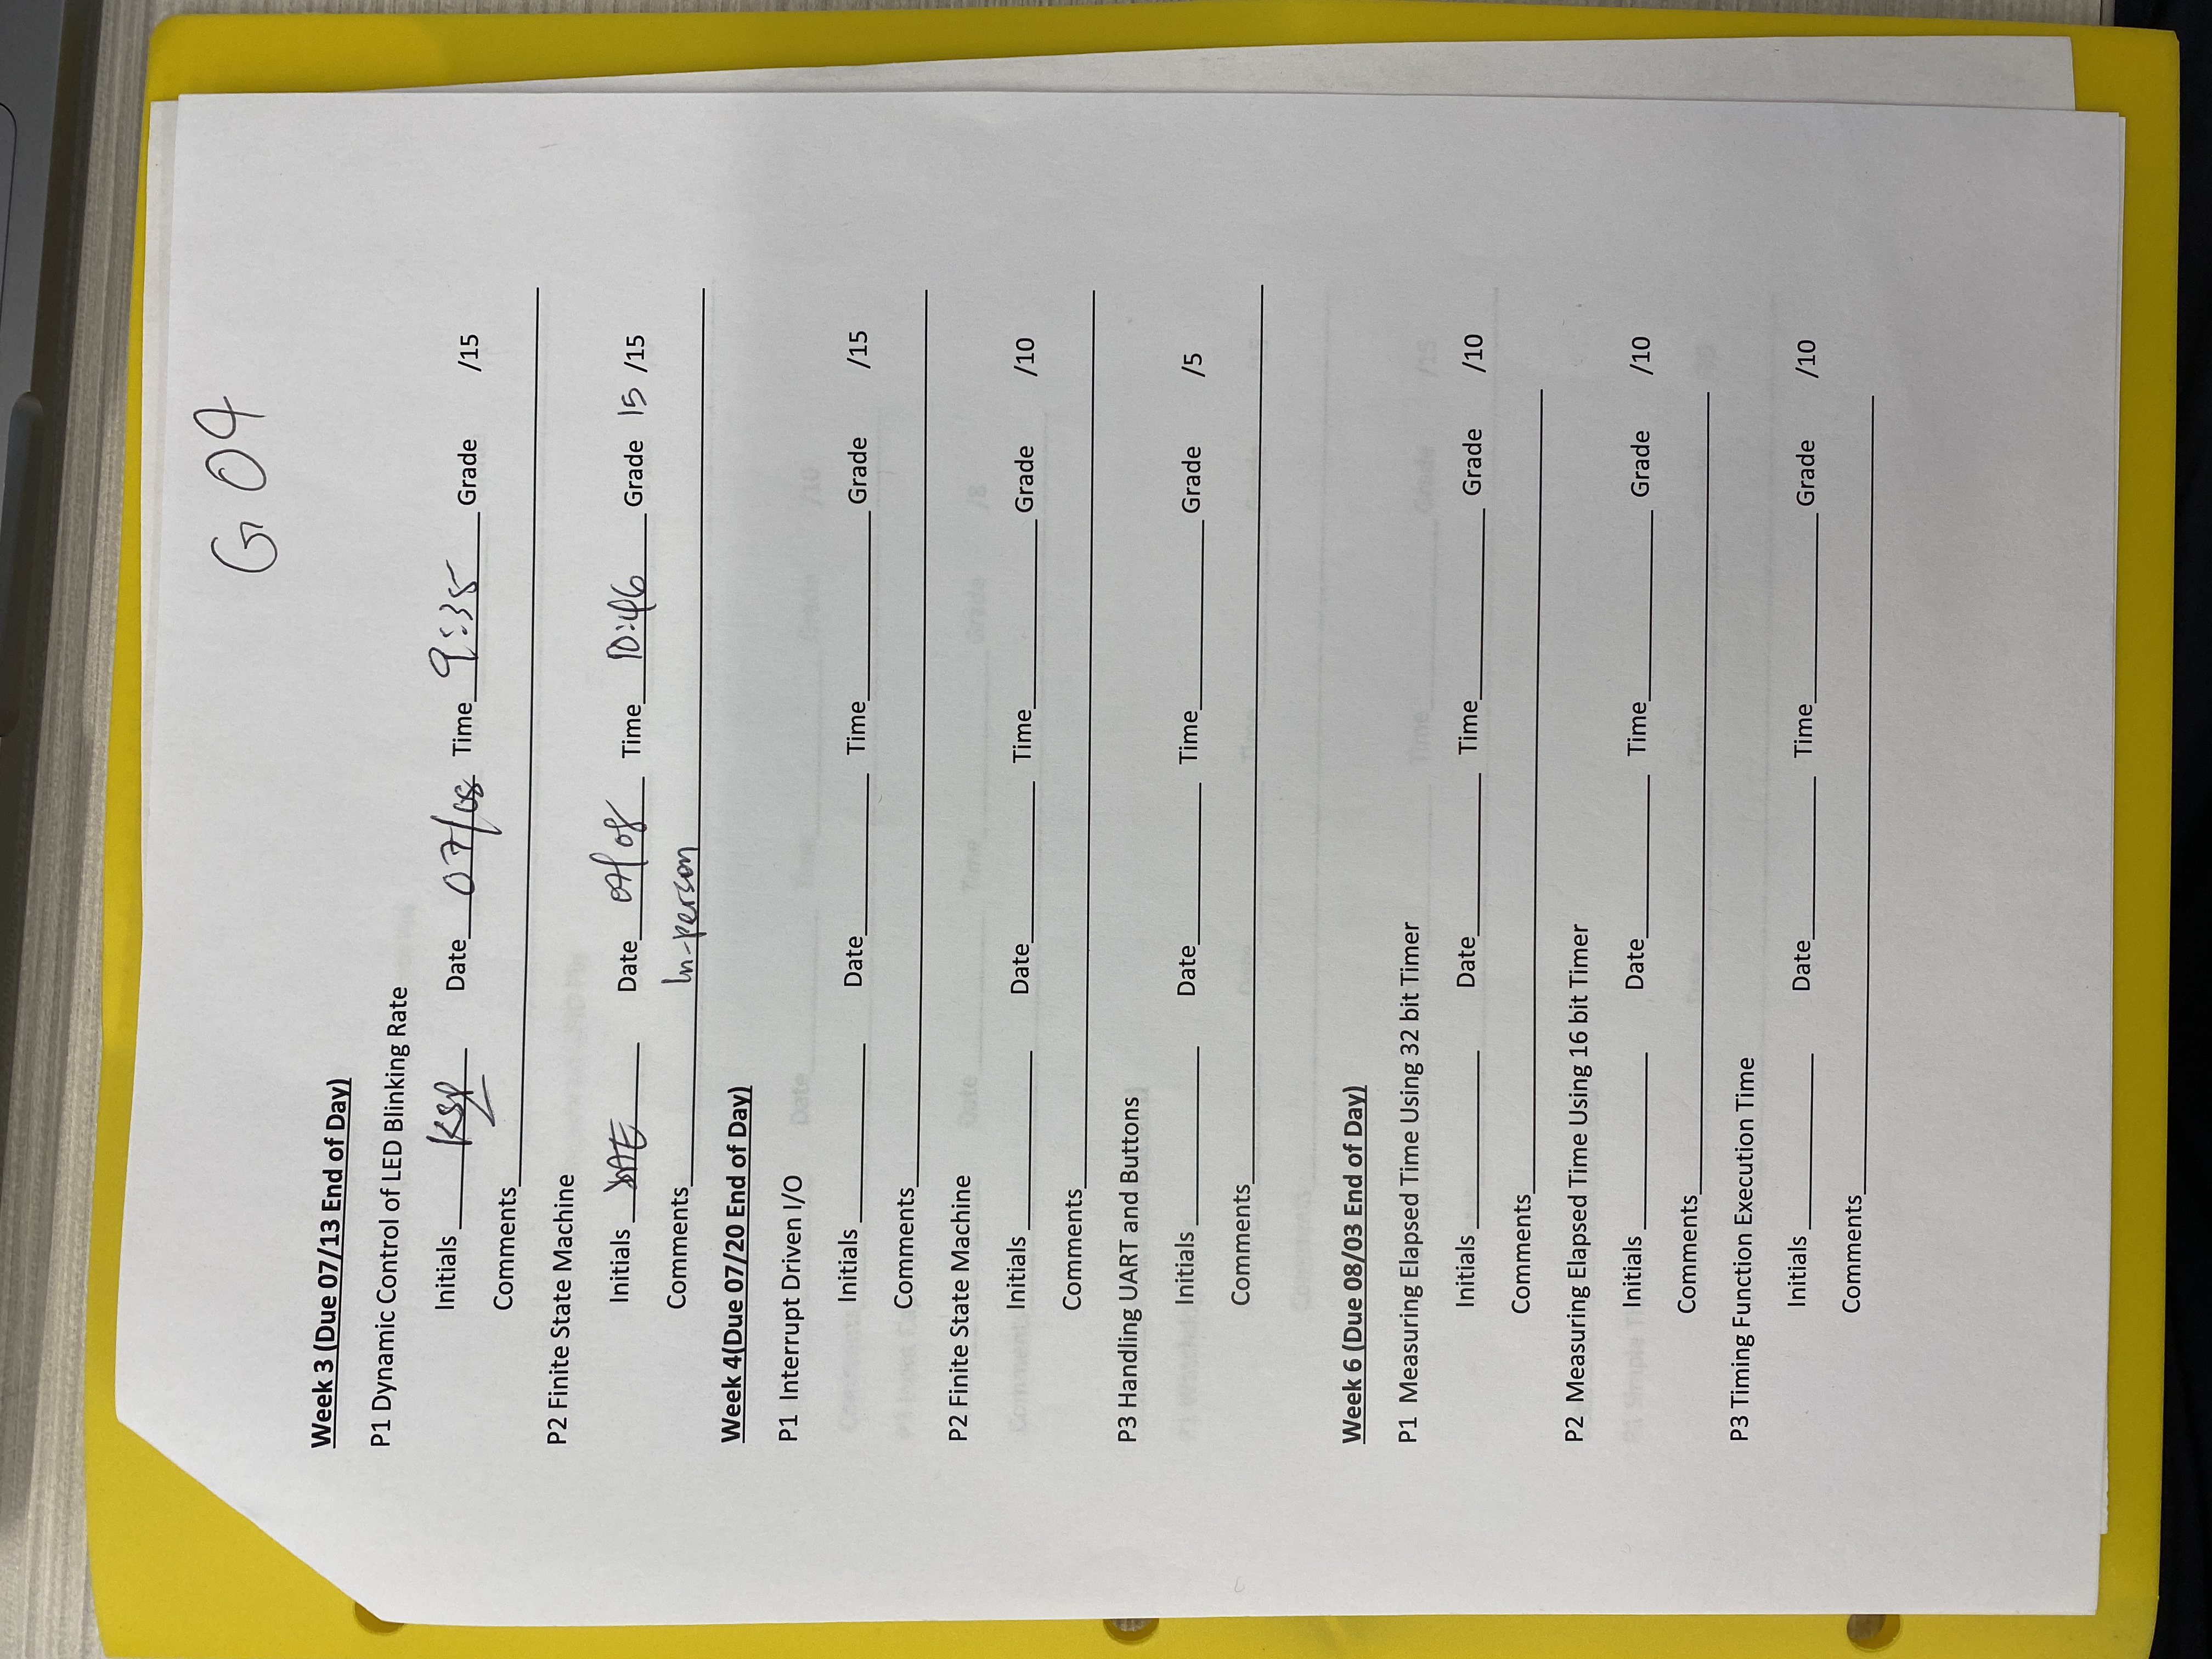 G 04
Week 3 (Due 07/13 End of Day)
P1 Dynamic Control of LED Blinking Rate
Initials KSP Date 07/08 Time 9:35 Grade /15
Comments
P2 Finite State Machine
Initials Date 07/08 Time 10:46 Grade 15 /15
Comments In-person
Week 4(Due 07/20 End of Day)
P1 Interrupt Driven I/O
Initials Date Time Grade /15
Comments
P2 Finite State Machine
Initials Date Time Grade /10
Comments
P3 Handling UART and Buttons
Initials Date Time Grade /5
Comments
Week 6 (Due 08/03 End of Day)
P1 Measuring Elapsed Time Using 32 bit Timer
Initials Date Time Grade /10
Comments
P2 Measuring Elapsed Time Using 16 bit Timer
Initials Date Time Grade /10
Comments
P3 Timing Function Execution Time
Initials Date Time Grade /10
Comments